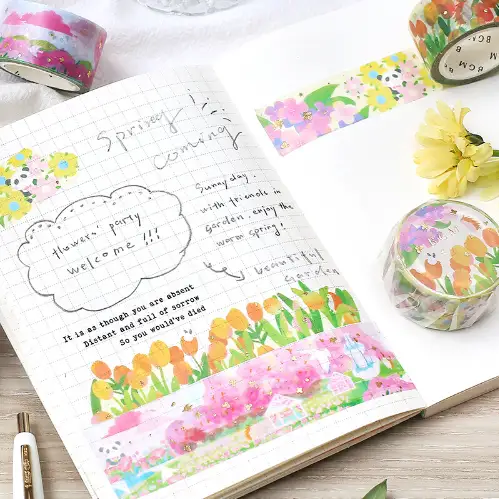 Spring!
coming
flowers party
welcome !!!
Sunny day.
with friends in
garden. enjoy the
warm spring!
beautiful
garden
It is as though you are absent
Distant and full of sorrow
So you would've died
BGM
BGM